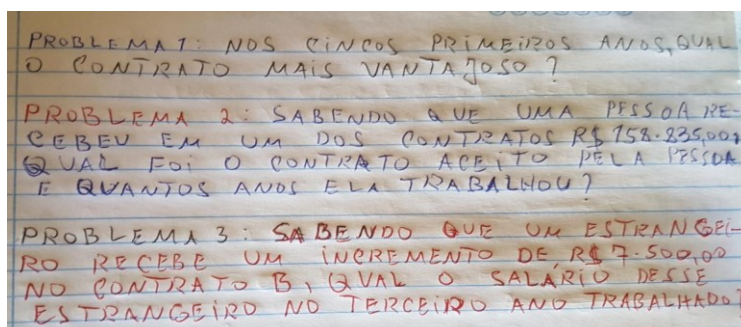 PROBLEMA 1: NOS CINCOS PRIMEIROS ANOS, QUAL
O CONTRATO MAIS VANTAJOSO?
PROBLEMA 2: SABENDO QUE UMA PESSOA RE-
CEBEU EM UM DOS CONTRATOS R$ 158.835,00,
QUAL FOI O CONTRATO ACEITO PELA PESSOA
E QUANTOS ANOS ELA TRABALHOU?
PROBLEMA 3: SABENDO QUE UM ESTRANGEI-
RO RECEBE UM INCREMENTO DE R$ 7.500,00
NO CONTRATO B, QUAL O SALÁRIO DESSE
ESTRANGEIRO NO TERCEIRO ANO TRABALHADO?